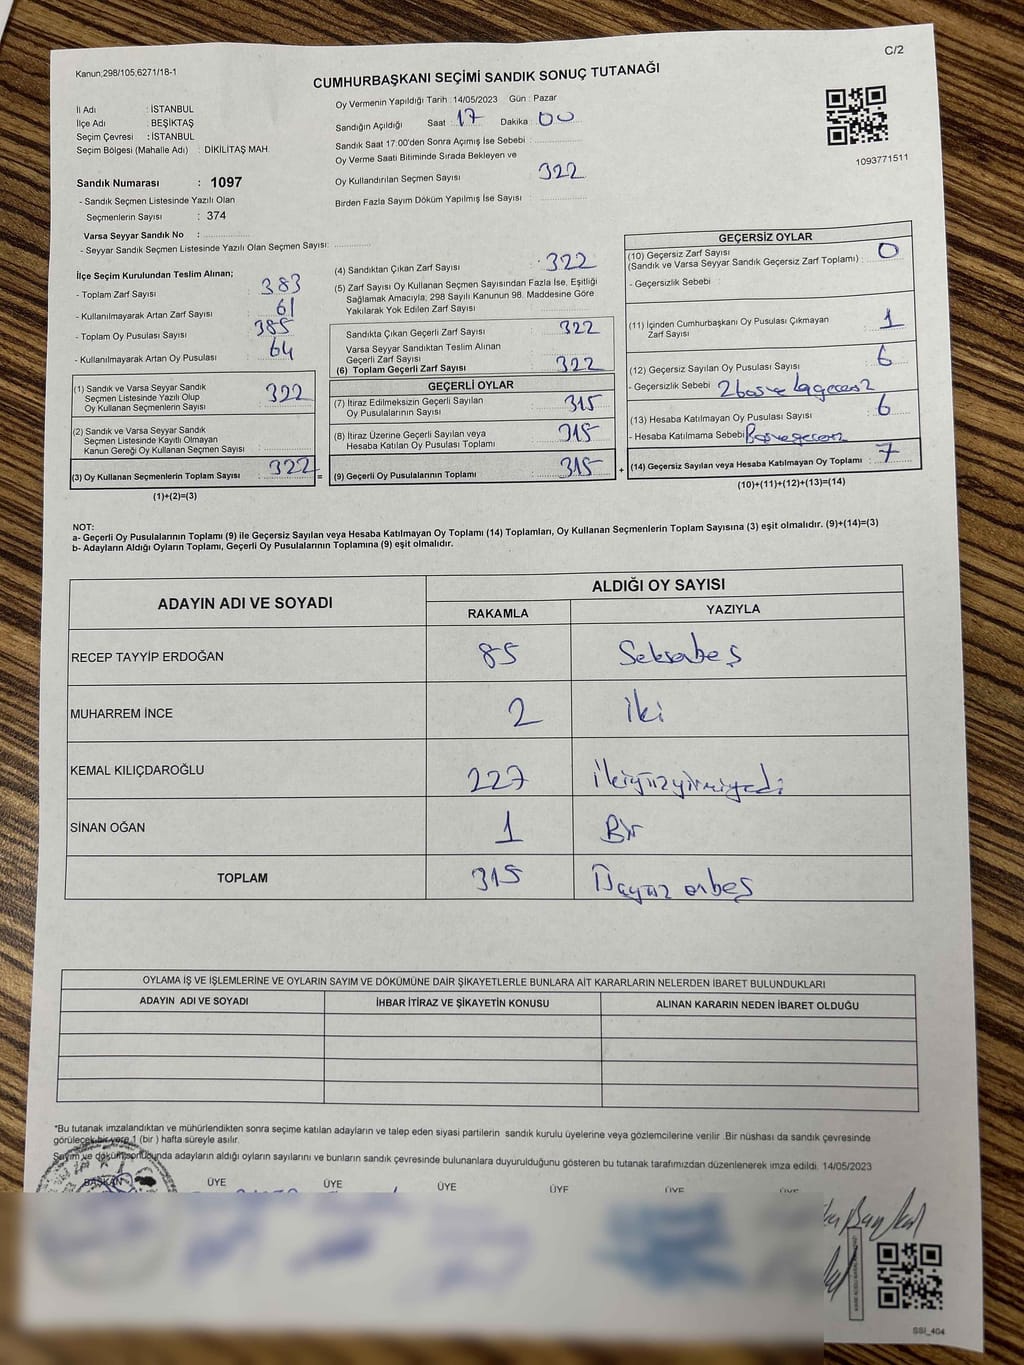 Kanun,298/105,6271/18-1
C/2
CUMHURBAŞKANI SEÇİMİ SANDIK SONUÇ TUTANAĞI
İl Adı : İSTANBUL
İlçe Adı : BEŞİKTAŞ
Seçim Çevresi : İSTANBUL
Seçim Bölgesi (Mahalle Adı) : DİKİLİTAŞ MAH.
Sandık Numarası : 1097
- Sandık Seçmen Listesinde Yazılı Olan
Seçmenlerin Sayısı : 374
Varsa Seyyar Sandık No :
- Seyyar Sandık Seçmen Listesinde Yazılı Olan Seçmen Sayısı:
Oy Vermenin Yapıldığı Tarih : 14/05/2023 Gün : Pazar
Sandığın Açıldığı Saat : 17 Dakika : 00
Sandık Saat 17:00'den Sonra Açımış İse Sebebi :
Oy Verme Saati Bitiminde Sırada Bekleyen ve
Oy Kullandırılan Seçmen Sayısı 322
Birden Fazla Sayım Döküm Yapılmış İse Sayısı :
1093771511
İlçe Seçim Kurulundan Teslim Alınan;
- Toplam Zarf Sayısı : 383
- Kullanılmayarak Artan Zarf Sayısı : 61
- Toplam Oy Pusulası Sayısı : 385
- Kullanılmayarak Artan Oy Pusulası : 64
(1) Sandık ve Varsa Seyyar Sandık
Seçmen Listesinde Yazılı Olup
Oy Kullanan Seçmenlerin Sayısı : 322
(2) Sandık ve Varsa Seyyar Sandık
Seçmen Listesinde Kayıtlı Olmayan
Kanun Gereği Oy Kullanan Seçmen Sayısı :
(3) Oy Kullanan Seçmenlerin Toplam Sayısı : 322 =
(1)+(2)=(3)
(4) Sandıktan Çıkan Zarf Sayısı : 322
(5) Zarf Sayısı Oy Kullanan Seçmen Sayısından Fazla İse, Eşitliği
Sağlamak Amacıyla, 298 Sayılı Kanunun 98. Maddesine Göre
Yakılarak Yok Edilen Zarf Sayısı :
Sandıkta Çıkan Geçerli Zarf Sayısı : 322
Varsa Seyyar Sandıktan Teslim Alınan
Geçerli Zarf Sayısı :
(6) Toplam Geçerli Zarf Sayısı : 322
GEÇERLİ OYLAR
(7) İtiraz Edilmeksizin Geçerli Sayılan
Oy Pusulalarının Sayısı : 315
(8) İtiraz Üzerine Geçerli Sayılan veya
Hesaba Katılan Oy Pusulası Toplamı : 315
(9) Geçerli Oy Pusulalarının Toplamı : 315 +
GEÇERSİZ OYLAR
(10) Geçersiz Zarf Sayısı
(Sandık ve Varsa Seyyar Sandık Geçersiz Zarf Toplamı) : 0
- Geçersizlik Sebebi :
(11) İçinden Cumhurbaşkanı Oy Pusulası Çıkmayan
Zarf Sayısı : 1
(12) Geçersiz Sayılan Oy Pusulası Sayısı : 6
- Geçersizlik Sebebi :
(13) Hesaba Katılmayan Oy Pusulası Sayısı : 6
- Hesaba Katılmama Sebebi :
(14) Geçersiz Sayılan veya Hesaba Katılmayan Oy Toplamı : 7
(10)+(11)+(12)+(13)=(14)
NOT:
a- Geçerli Oy Pusulalarının Toplamı (9) ile Geçersiz Sayılan veya Hesaba Katılmayan Oy Toplamı (14) Toplamları, Oy Kullanan Seçmenlerin Toplam Sayısına (3) eşit olmalıdır. (9)+(14)=(3)
b- Adayların Aldığı Oyların Toplamı, Geçerli Oy Pusulalarının Toplamına (9) eşit olmalıdır.
ADAYIN ADI VE SOYADI
ALDIĞI OY SAYISI
RAKAMLA YAZIYLA
RECEP TAYYİP ERDOĞAN 85 Seksenbeş
MUHARREM İNCE 2 İki
KEMAL KILIÇDAROĞLU 227 ikiyüzyirmiyedi
SİNAN OĞAN 1 Bir
TOPLAM 315 Üçyüz onbeş
OYLAMA İŞ VE İŞLEMLERİNE VE OYLARIN SAYIM VE DÖKÜMÜNE DAİR ŞİKAYETLERLE BUNLARA AİT KARARLARIN NELERDEN İBARET BULUNDUKLARI
ADAYIN ADI VE SOYADI İHBAR İTİRAZ VE ŞİKAYETİN KONUSU ALINAN KARARIN NEDEN İBARET OLDUĞU
*Bu tutanak imzalandıktan ve mühürlendikten sonra seçime katılan adayların ve talep eden siyasi partilerin sandık kurulu üyelerine veya gözlemcilerine verilir .Bir nüshası da sandık çevresinde
görülecek bir yere 1 (bir ) hafta süreyle asılır.
Sayım ve döküm sonucunda adayların aldığı oyların sayılarını ve bunların sandık çevresinde bulunanlara duyurulduğunu gösteren bu tutanak tarafımızdan düzenlenerek imza edildi. 14/05/2023
BAŞKAN ÜYE ÜYE ÜYE ÜYE ÜYE ÜYE
SSI_404